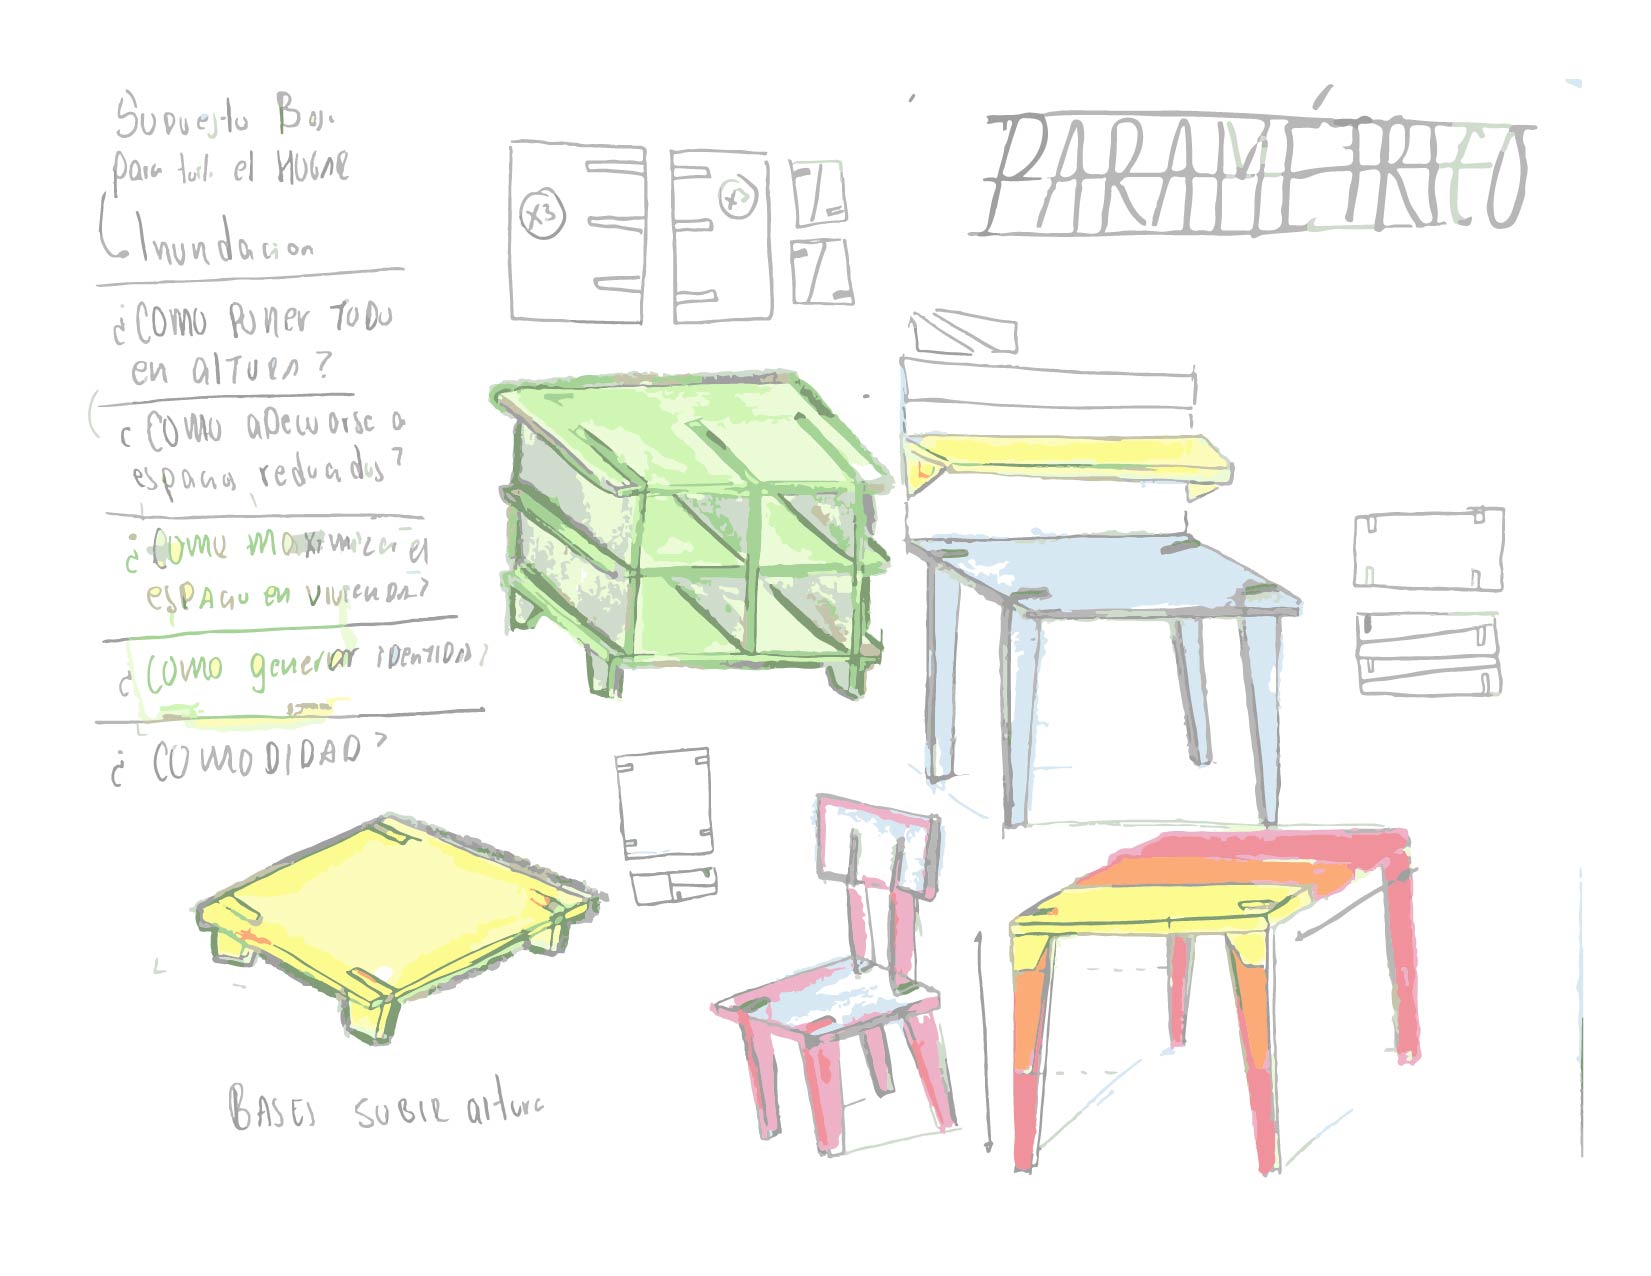 Supuesto Base
para todo el HUGAR
Inundacion
¿COMO PONER TODO
en alTURA?
¿COMO aDecuarse a
espacios reducidos?
¿COMO MaXimizar el
esPAcio en VIVIENDA?
¿COMO generar iDENTIDAD?
¿COMODIDAD?
X3
X3
PARAMÉTRICO
BASES SUBIR altura